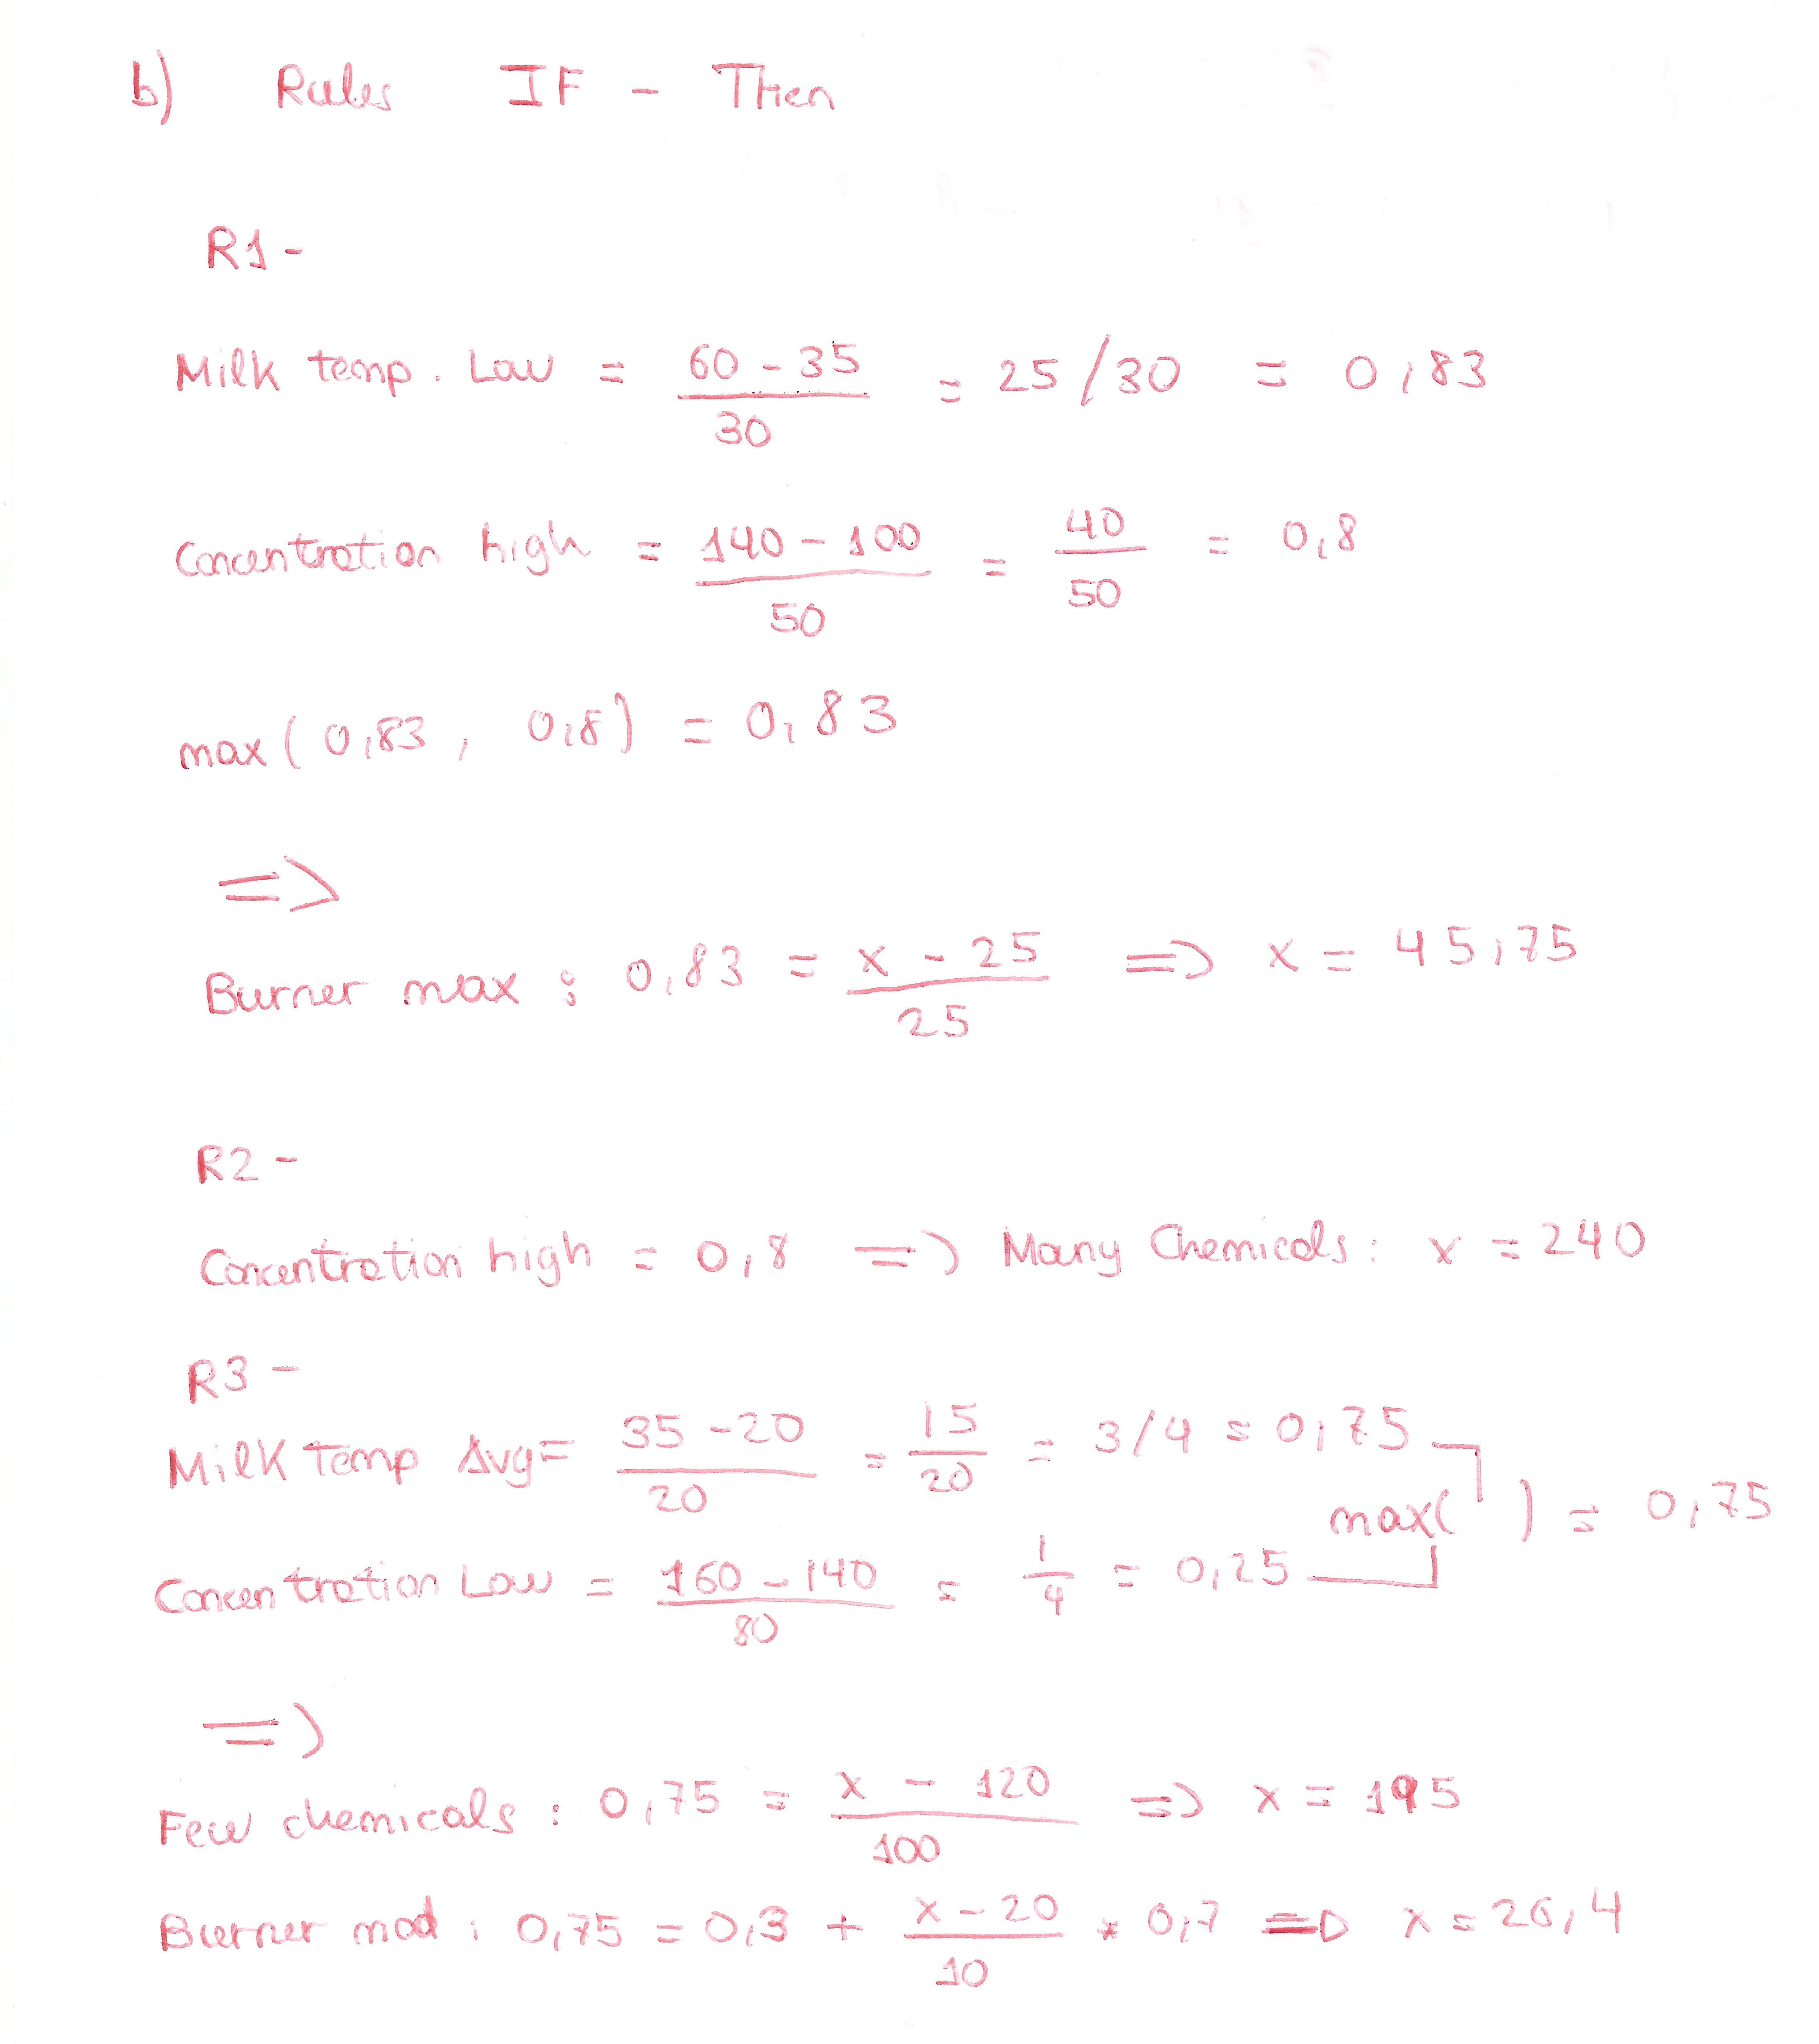 b) Rules IF - Then
R1 -
Milk temp. Low = (60 - 35)/30 = 25/30 = 0,83
Concentration high = (140 - 100)/50 = 40/50 = 0,8
max(0,83, 0,8) = 0,83
=>
Burner max : 0,83 = (x - 25)/25 => x = 45,75
R2 -
Concentration high = 0,8 => Many Chemicals: x = 240
R3 -
Milk Temp Avg = (35 - 20)/20 = 15/20 = 3/4 = 0,75
max( ) = 0,75
Concentration Low = (160 - 140)/80 = 1/4 = 0,25
=>
Few chemicals : 0,75 = (x - 120)/100 => x = 195
Burner mod : 0,75 = 0,3 + (x - 20)/10 * 0,7 => x = 26,4